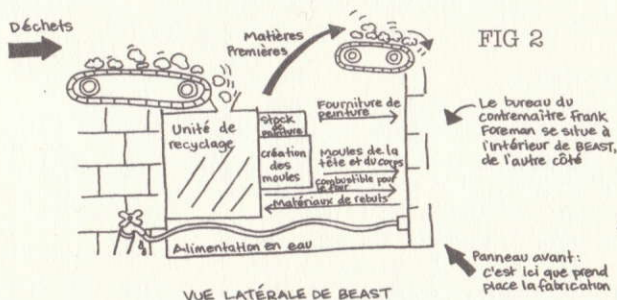 Déchets
Matières
Premières
FIG 2
Unité de
recyclage
stock de
peinture
création
des
moules
Fourniture de
peinture
Moules de la
tête et du corps
combustible pour
le four
Matériaux de rebuts
Alimentation en eau
Le bureau du
contremaître Frank
Foreman se situe à
l'intérieur de BEAST,
de l'autre côté
Panneau avant:
c'est ici que prend
place la fabrication
VUE LATÉRALE DE BEAST